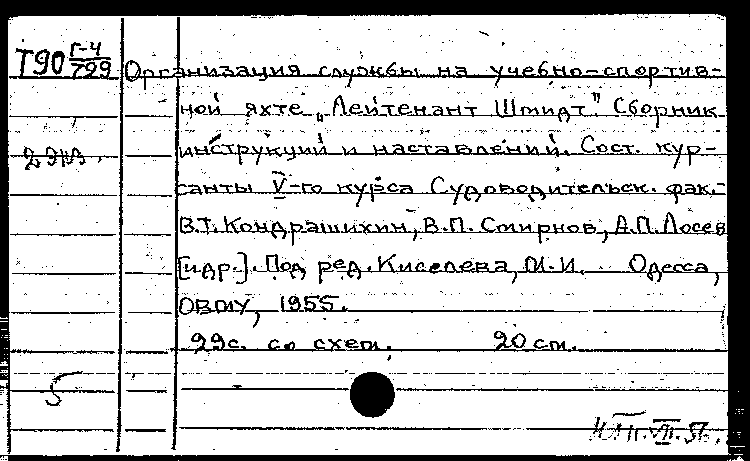 Т90 Г-4/799
Организация службы на учебно-спортив-
ной яхте „Лейтенант Шмидт". Сборник
инструкций и наставлений. Сост. кур-
2 экз.
санты V-го курса Судоводительск. фак.-
В.Т. Кондрашихин, В.П. Смирнов, А.П. Лосев
[и др.]. Под ред. Киселева, М.И. Одесса,
ОВМУ, 1955.
29 с. со схем. 20 см.
5
VII.56.